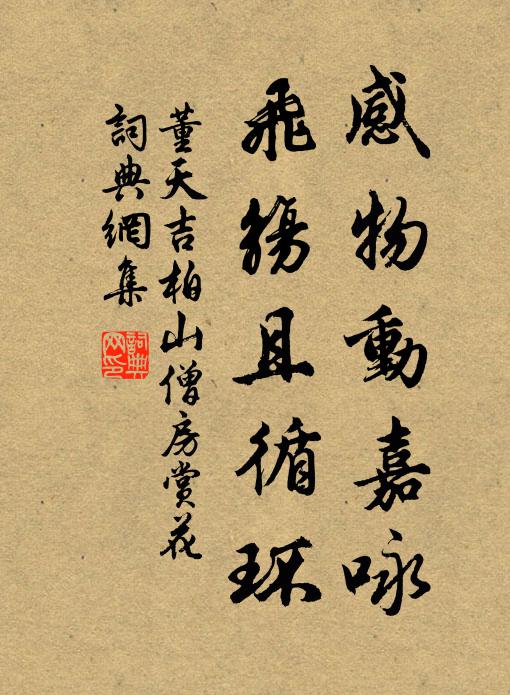 感物動嘉咏
飛觴且循环
董天吉柏山僧房赏花
詞典網集
詞典網印